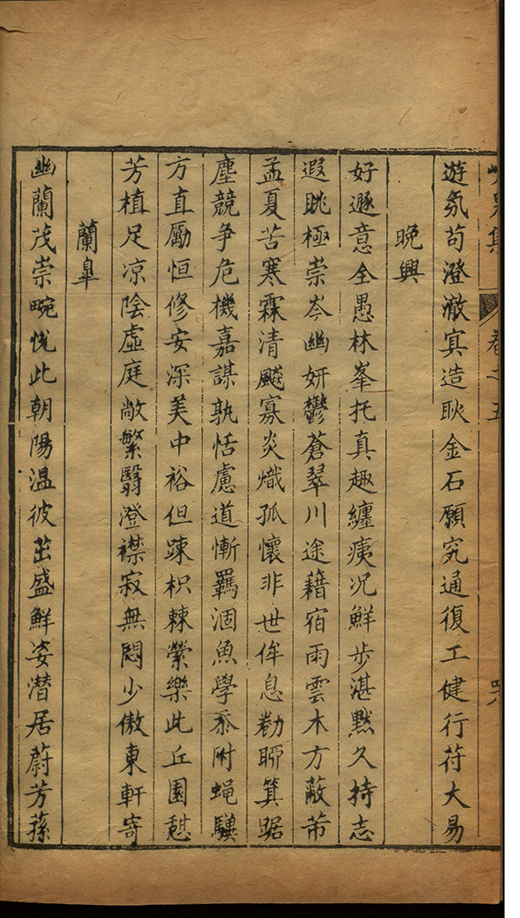 峴泉集 卷之五
遊氛苟澄澈寘造耿金石願究通復工健行符大易
晚興
好遯意全愚林峯托真趣纏痍况鮮步湛默久持志
遐眺極崇岑幽妍鬱蒼翠川途藉宿雨雲木方蔽芾
孟夏苦寒霖清飈寡炎熾孤懷非世侔息勌聊箕踞
塵競争危機嘉謀孰恬慮道慚羈涸魚學忝附蝇驥
方直勵恒修安深美中裕但踈枳棘縈樂此丘園憇
芳植足凉陰虚庭敞繁翳澄襟寂無悶少傲東軒寄
蘭臯
幽蘭茂崇畹恱此朝陽温彼茁盛鮮姿潜居蔚芳蓀